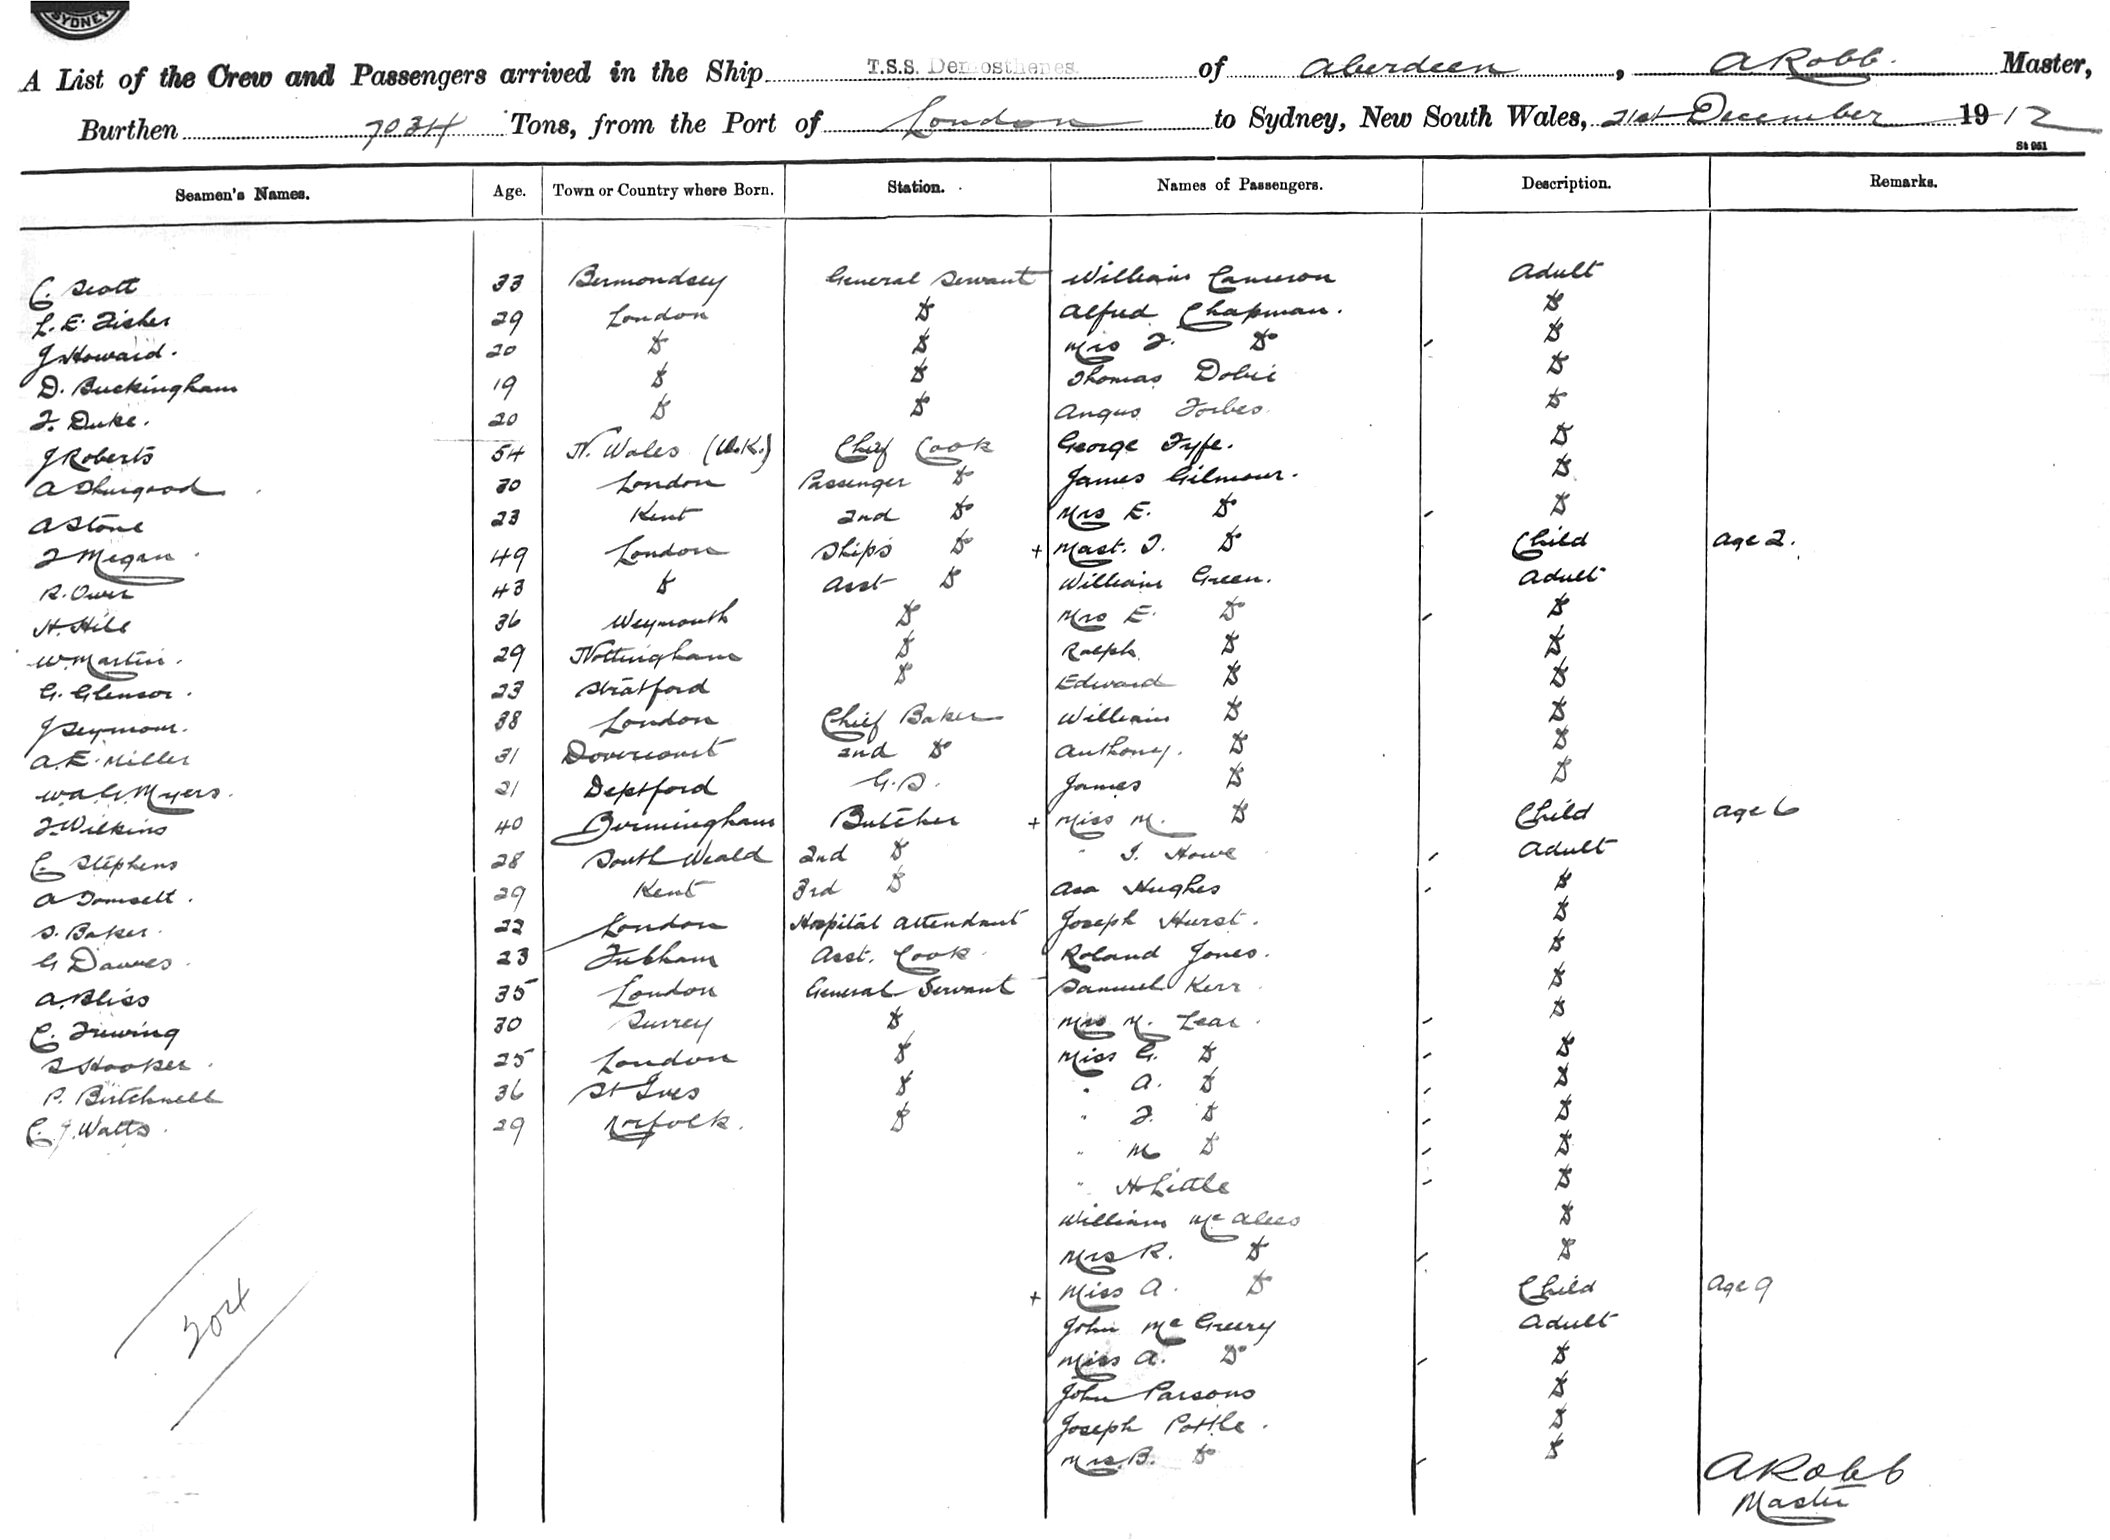 SYDNEY
A List of the Crew and Passengers arrived in the Ship T.S.S. Demosthenes of Aberdeen, A Robb. Master,
Burthen 7034 Tons, from the Port of London to Sydney, New South Wales, 21st December 1912
St 961
Seamen's Names. Age. Town or Country where Born. Station. Names of Passengers. Description. Remarks.
C. Scott 33 Bermondsey General Servant William Cameron Adult
L. E. Fisher 29 London Do Alfred Chapman. Do
J Howard. 20 Do Do Mrs F. Do Do
D. Buckingham 19 Do Do Thomas Dobie Do
F. Duke. 20 Do Do Angus Forbes Do
J Roberts 54 N. Wales (U.K.) Chief Cook George Fyfe. Do
A Thurgood 30 London Passenger Do James Gilmour. Do
A Stone 23 Kent 2nd Do Mrs E. Do Do
J Megan 49 London Ships Do + Mast. J. Do Child Age 2.
R. Ower 43 Do Asst Do William Green. Adult
H. Hill 36 Weymouth Do Mrs E. Do Do
W. Martin. 29 Nottingham Do Ralph Do Do
G. Glensor. 23 Stratford Do Edward Do Do
J Seymour. 38 London Chief Baker William Do Do
A. E. Miller 31 Dovercourt 2nd Do Anthony. Do Do
W. A. G. Myers. 21 Deptford G.S. James Do Do
J. Wilkins 40 Birmingham Butcher + Miss M. Do Child Age 6
C. Stephens 28 South Weald 2nd Do " J. Howe Adult
A Domsett. 29 Kent 3rd Do Asa Hughes Do
S. Baker. 22 London Hospital Attendant Joseph Hurst. Do
G Dawes 23 Fulham Asst. Cook. Roland Jones. Do
A. Bliss 35 London General Servant Samuel Kerr Do
C. Trewing 30 Surrey Do Mrs M. Lear. Do
S Hooker. 25 London Do Miss G. Do Do
P. Birtchnell 36 St Ives Do " A. Do Do
C. J. Watts. 29 Norfolk. Do " F. Do Do
" M Do Do
" H Little Do
William McAlees Do
Mrs R. Do Do
+ Miss A. Do Child Age 9
John McGreery Adult
Miss A. Do Do
John Parsons Do
Joseph Pottle. Do
Mrs. B. Do Do
304
A Robb
Master